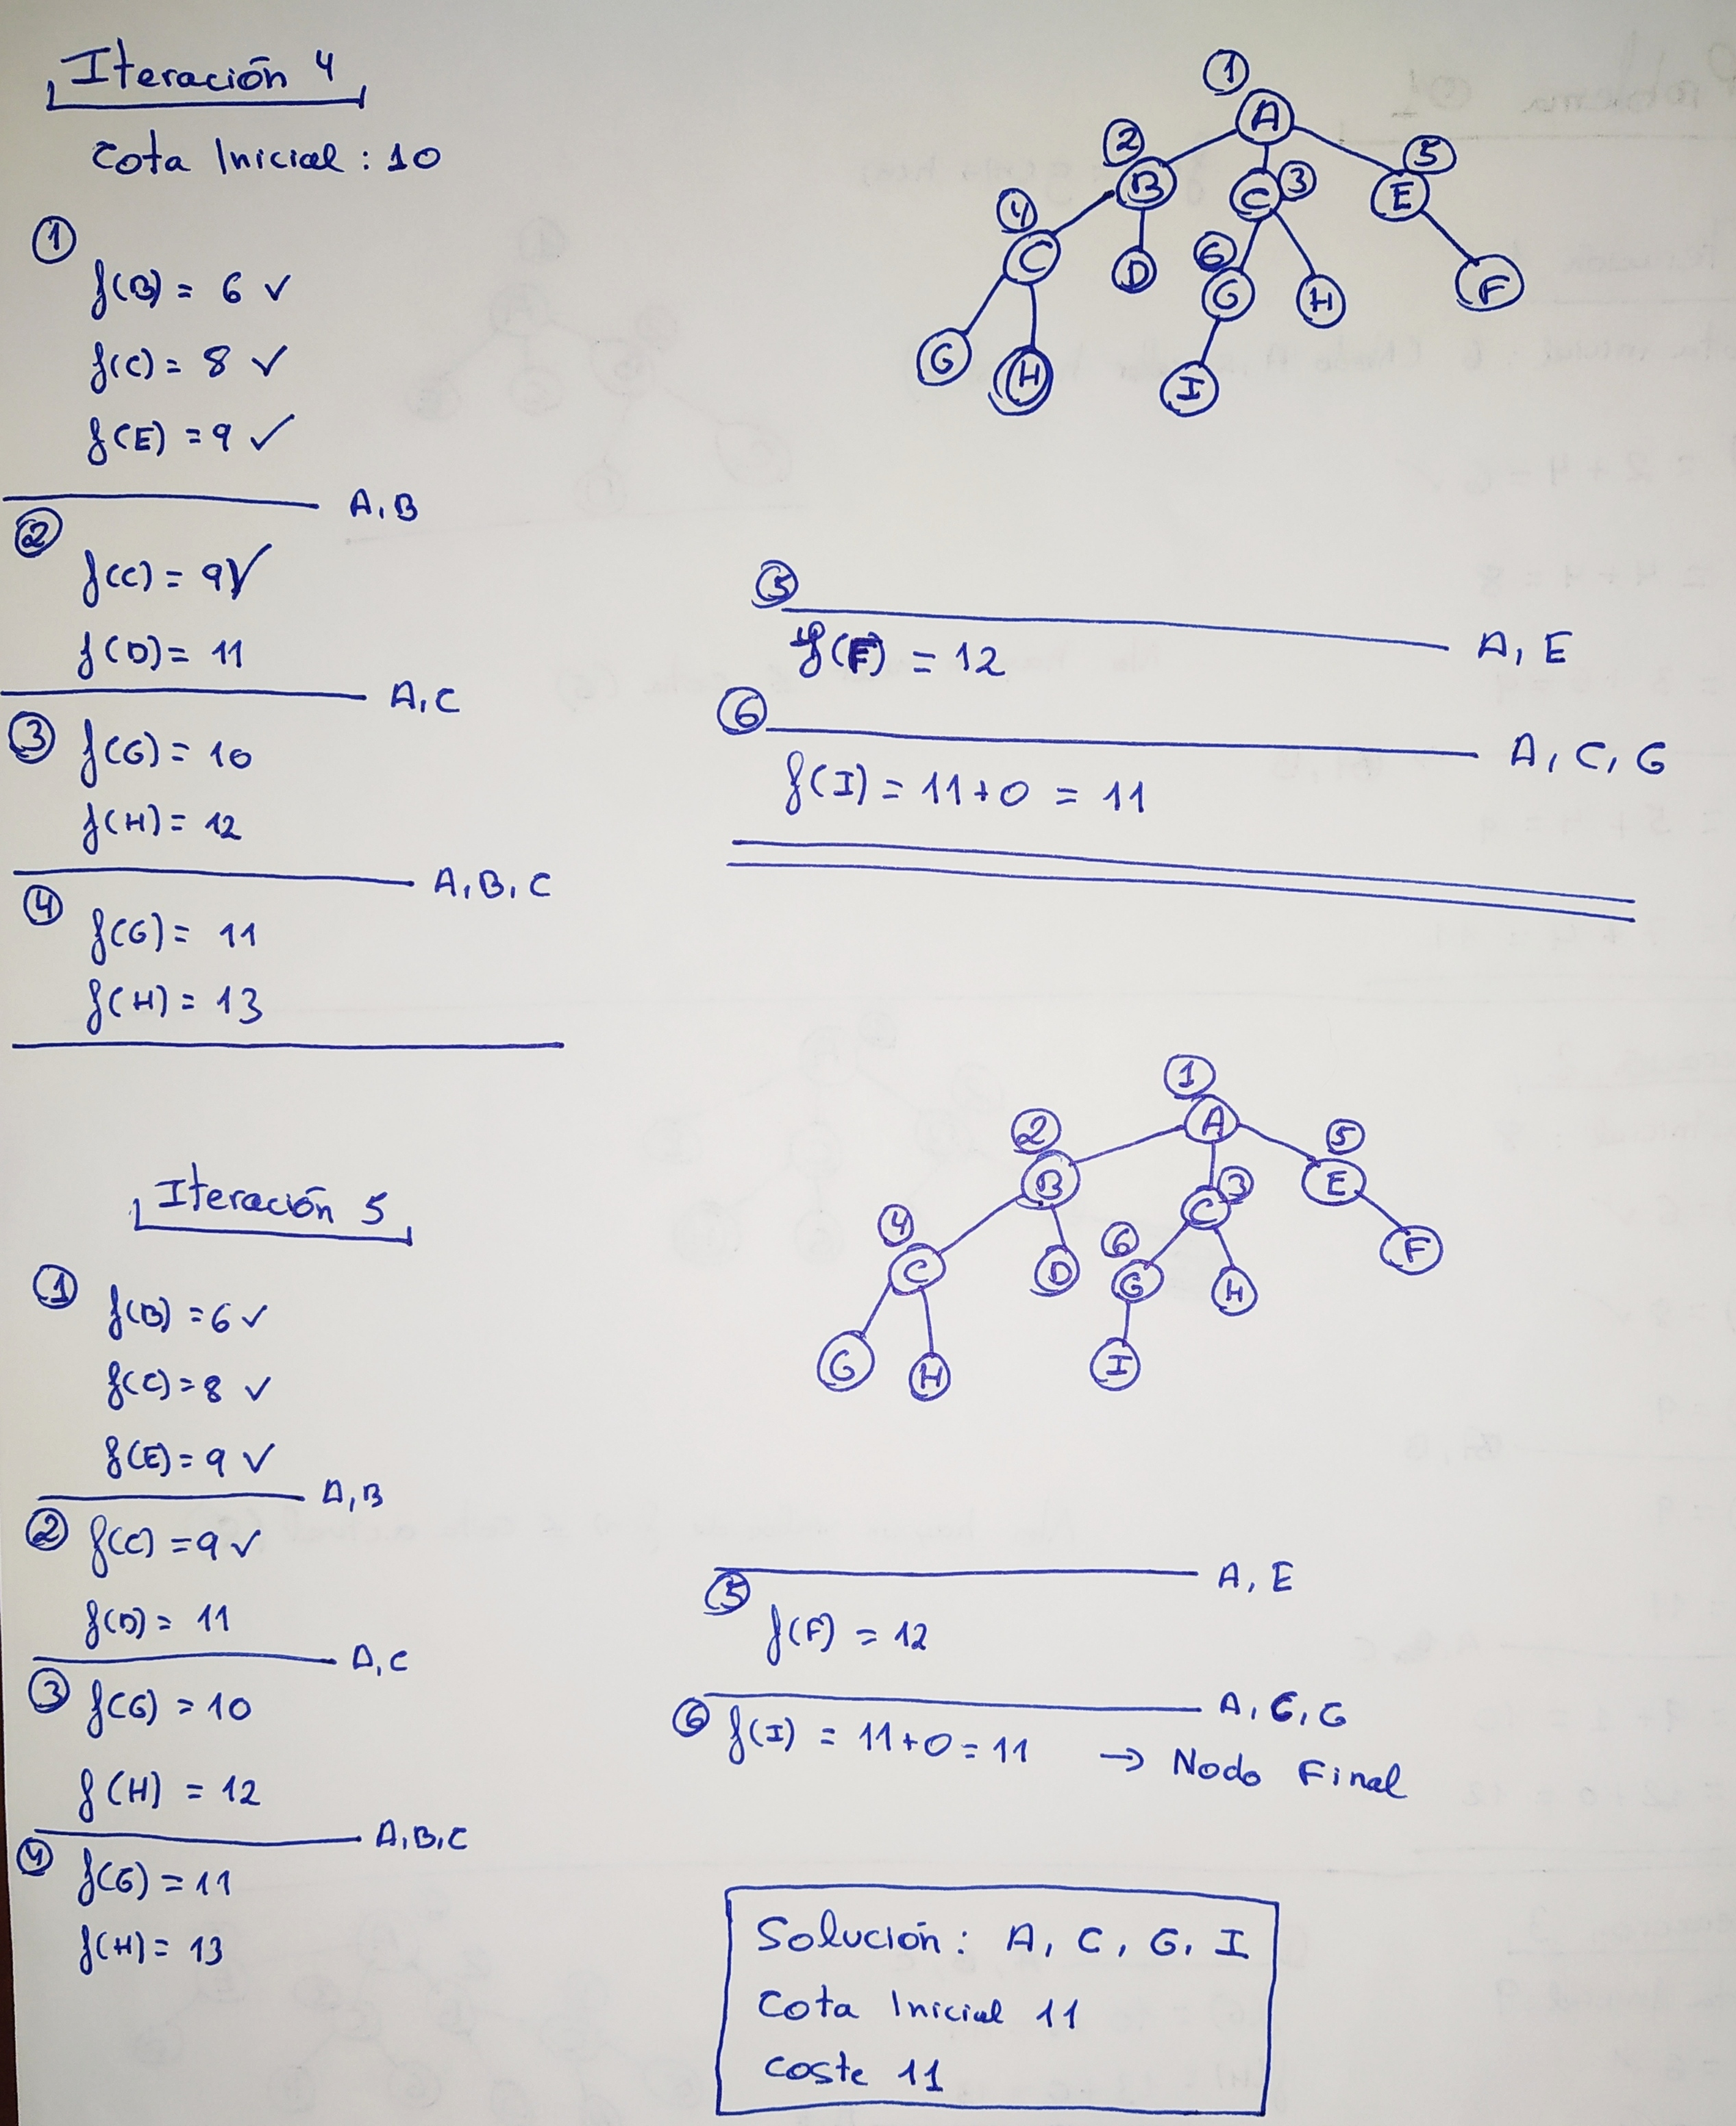 Iteración 4
Cota Inicial : 10
1
f(B) = 6 ✓
f(C) = 8 ✓
f(E) = 9 ✓
A, B
2
f(C) = 9 ✓
f(D) = 11
A, C
3 f(G) = 10
f(H) = 12
A, B, C
4
f(G) = 11
f(H) = 13
1
A
2
B
C 3
5
E
4
C
D
6
G
H
F
G
H
I
5
A, E
f(F) = 12
6
A, C, G
f(I) = 11 + 0 = 11
Iteración 5
1
f(B) = 6 ✓
f(C) = 8 ✓
f(E) = 9 ✓
A, B
2 f(C) = 9 ✓
f(D) = 11
A, C
3 f(G) = 10
f(H) = 12
A, B, C
4 f(G) = 11
f(H) = 13
1
A
2
B
C 3
5
E
4
C
D
6
G
H
F
G
H
I
A, E
5
f(F) = 12
A, C, G
6 f(I) = 11 + 0 = 11 → Nodo Final
Solución : A, C, G, I
Cota Inicial 11
Coste 11